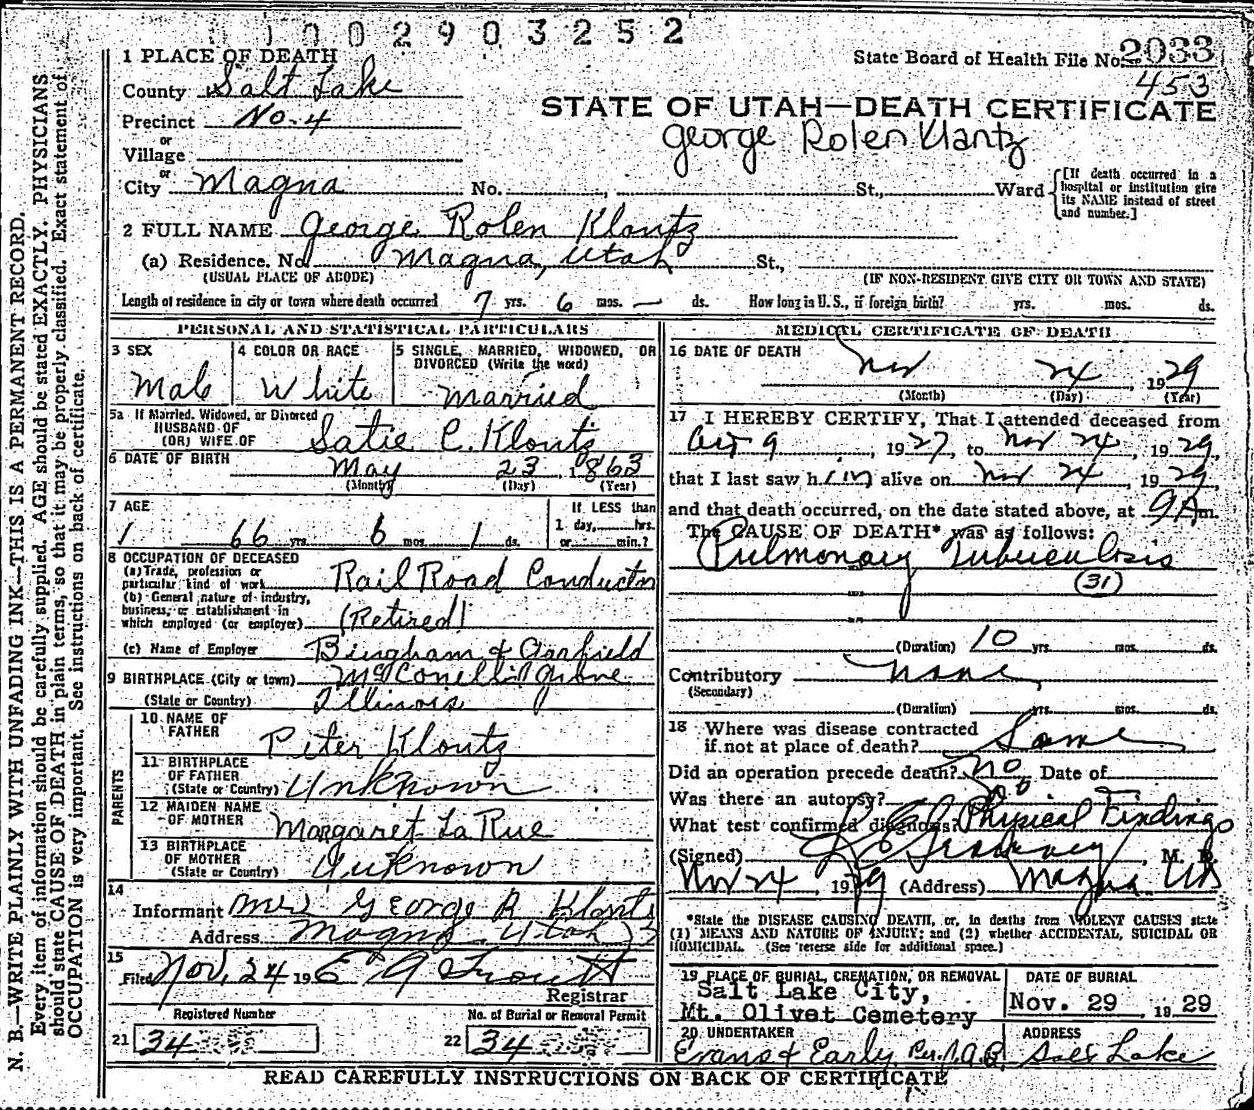 1 0 0 2 9 0 3 2 5 2
1 PLACE OF DEATH
State Board of Health File No. 2033
453
County Salt Lake
STATE OF UTAH—DEATH CERTIFICATE
Precinct No-4
George Rolen Klantz
or
Village
or
City Magna No. , St., Ward
[If death occurred in a hospital or institution give its NAME instead of street and number.]
2 FULL NAME George Rolen Klontz
(a) Residence, No. Magna, Utah St.,
(USUAL PLACE OF ABODE) (IF NON-RESIDENT GIVE CITY OR TOWN AND STATE)
Length of residence in city or town where death occurred 7 yrs. 6 mos. — ds. How long in U. S., if foreign birth? yrs. mos. ds.
PERSONAL AND STATISTICAL PARTICULARS
3 SEX
Male
4 COLOR OR RACE
White
5 SINGLE, MARRIED, WIDOWED, OR
DIVORCED (Write the word)
Married
5a If Married, Widowed, or Divorced
HUSBAND OF
(OR) WIFE OF Satie C. Klontz
6 DATE OF BIRTH May 23 1863
(Month) (Day) (Year)
7 AGE
1 66 yrs. 6 mos. 1 ds.
If LESS than
1 day, hrs.
or min.?
8 OCCUPATION OF DECEASED
(a) Trade, profession or
particular kind of work Rail Road Conductor
(b) General nature of industry,
business, or establishment in
which employed (or employer) (Retired)
(c) Name of Employer Bingham & Garfield
9 BIRTHPLACE (City or town) McConell's Grove
(State or Country) Illinois
PARENTS
10 NAME OF
FATHER Peter Klontz
11 BIRTHPLACE
OF FATHER
(State or Country) Unknown
12 MAIDEN NAME
OF MOTHER Margaret LaRue
13 BIRTHPLACE
OF MOTHER
(State or Country) Unknown
14
Informant Mrs George R Klontz
Address Magna Utah
15
Filed Nov. 24 19 E G Troutt
Registrar
Registered Number
21 34
No. of Burial or Removal Permit
22 34
MEDICAL CERTIFICATE OF DEATH
16 DATE OF DEATH
Nov 24, 1929
(Month) (Day) (Year)
17 I HEREBY CERTIFY, That I attended deceased from
Oct 9, 1927, to Nov 24, 1929,
that I last saw him alive on Nov 24, 1929,
and that death occurred, on the date stated above, at 9 A m.
The CAUSE OF DEATH* was as follows:
Pulmonary Tuberculosis
(31)
(Duration) 10 yrs. mos. ds.
Contributory none
(Secondary)
(Duration) yrs. mos. ds.
18 Where was disease contracted
if not at place of death? Same
Did an operation precede death? No Date of
Was there an autopsy? No
What test confirmed diagnosis? Physical Findings
(Signed) , M. D.
Nov 24, 1929 (Address) Magna Ut
*State the DISEASE CAUSING DEATH, or, in deaths from VIOLENT CAUSES state
(1) MEANS AND NATURE OF INJURY; and (2) whether ACCIDENTAL, SUICIDAL OR
HOMICIDAL. (See reverse side for additional space.)
19 PLACE OF BURIAL, CREMATION, OR REMOVAL
Salt Lake City,
Mt. Olivet Cemetery
DATE OF BURIAL
Nov. 29 1929
20 UNDERTAKER
Evans & Early
ADDRESS
Salt Lake
READ CAREFULLY INSTRUCTIONS ON BACK OF CERTIFICATE
N. B.—WRITE PLAINLY WITH UNFADING INK—THIS IS A PERMANENT RECORD.
Every item of information should be carefully supplied. AGE should be stated EXACTLY. PHYSICIANS
should state CAUSE OF DEATH in plain terms, so that it may be properly classified. Exact statement of
OCCUPATION is very important. See instructions on back of certificate.